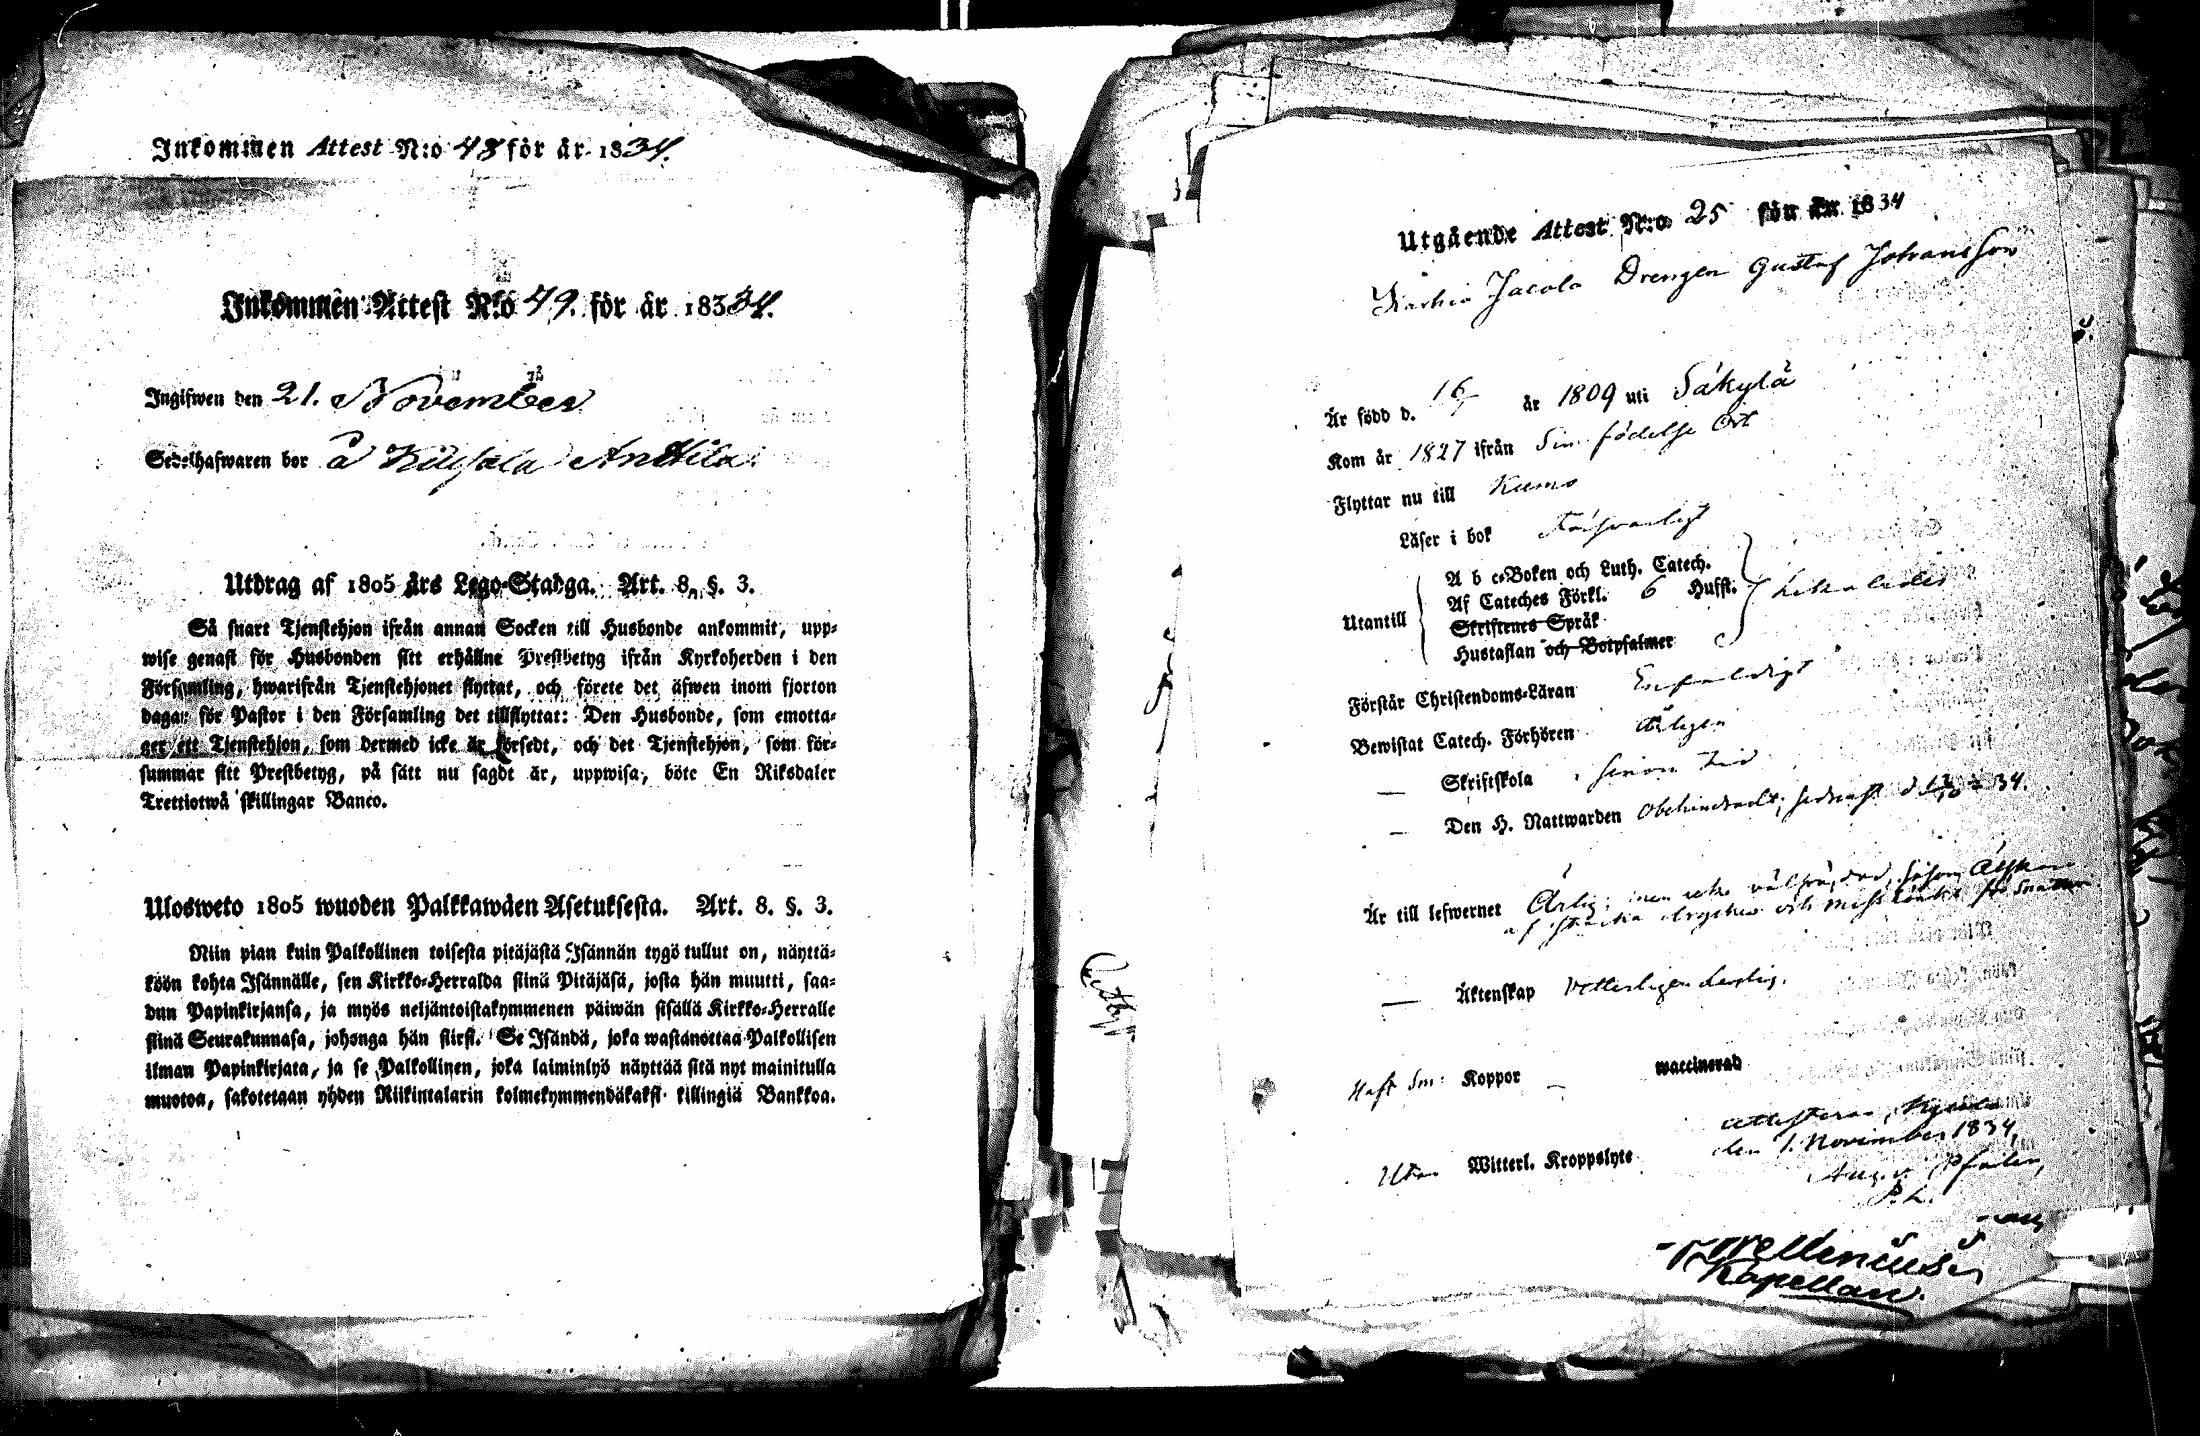 Inkommen Attest N:o 48 för år 1834.
Inkommen Attest N:o 49. för år 18334.
Ingifwen den 21. November
Sedelhafwaren bor å Kilesala Anttila.
Utdrag af 1805 års Lego-Stadga. Art. 8. §. 3.
Så snart Tjenstehjon ifrån annan Socken till Husbonde ankommit, upp-
wise genast för Husbonden sitt erhållne Prestbetyg ifrån Kyrkoherden i den
Församling, hwarifrån Tjenstehjonet flyttat, och förete det äfwen inom fjorton
dagar för Pastor i den Församling det tillflyttat: Den Husbonde, som emotta-
ger ett Tjenstehjon, som dermed icke är försedt, och det Tjenstehjon, som för-
summar sitt Prestbetyg, på sätt nu sagdt är, uppwisa, böte En Riksdaler
Trettiotwå skillingar Banco.
Ulosweto 1805 wuoden Palkkawäen Asetuksesta. Art. 8. §. 3.
Niin pian kuin Palkollinen toisesta pitäjästä Isännän tygö tullut on, näyttä-
köön kohta Isännälle, sen Kirkko-Herralda siinä Pitäjäsä, josta hän muutti, saa-
dun Papinkirjansa, ja myös neljäntoistakymmenen päiwän sisällä Kirkko-Herralle
siinä Seurakunnasa, johonga hän siirsi. Se Isändä, joka wastanottaa Palkollisen
ilman Papinkirjata, ja se Palkollinen, joka laiminlyö näyttää sitä nyt mainitulla
muotoa, sakotetaan yhden Riikintalarin kolmekymmendäkaksi killingiä Bankkoa.
Utgående Attest N:o 25 för år 1834
Jacola Drengen Gustaf Johansson
Är född d. 16/ år 1809 uti Säkylä
Kom år 1827 ifrån Sin födelse Ort
Flyttar nu till Kumo
Läser i bok Försvarligt
A b c-Boken och Luth. Catech.
Af Cateches Förkl. 6 Hufst.
Utantill
Skriftenes Språk
Hustaflan och Botpsalmer
Förstår Christendoms-Läran Enfaldigt
Bewistat Catech. Förhören Årligen
— Skriftskola sin tid
— Den H. Nattwarden Obehindradt, sednast d 34.
Är till lefwernet Ärlig, men icke såsom
af starka drycker och misstänkt för
— Äktenskap Vetterligen Ledig.
Haft Sm: Koppor — waccinerad
Attesterar,
den 1. November 1834,
Utan Witterl. Kroppslyte
Aug. v. Pfaler,
P. L.
Wellenius
Kapellan.